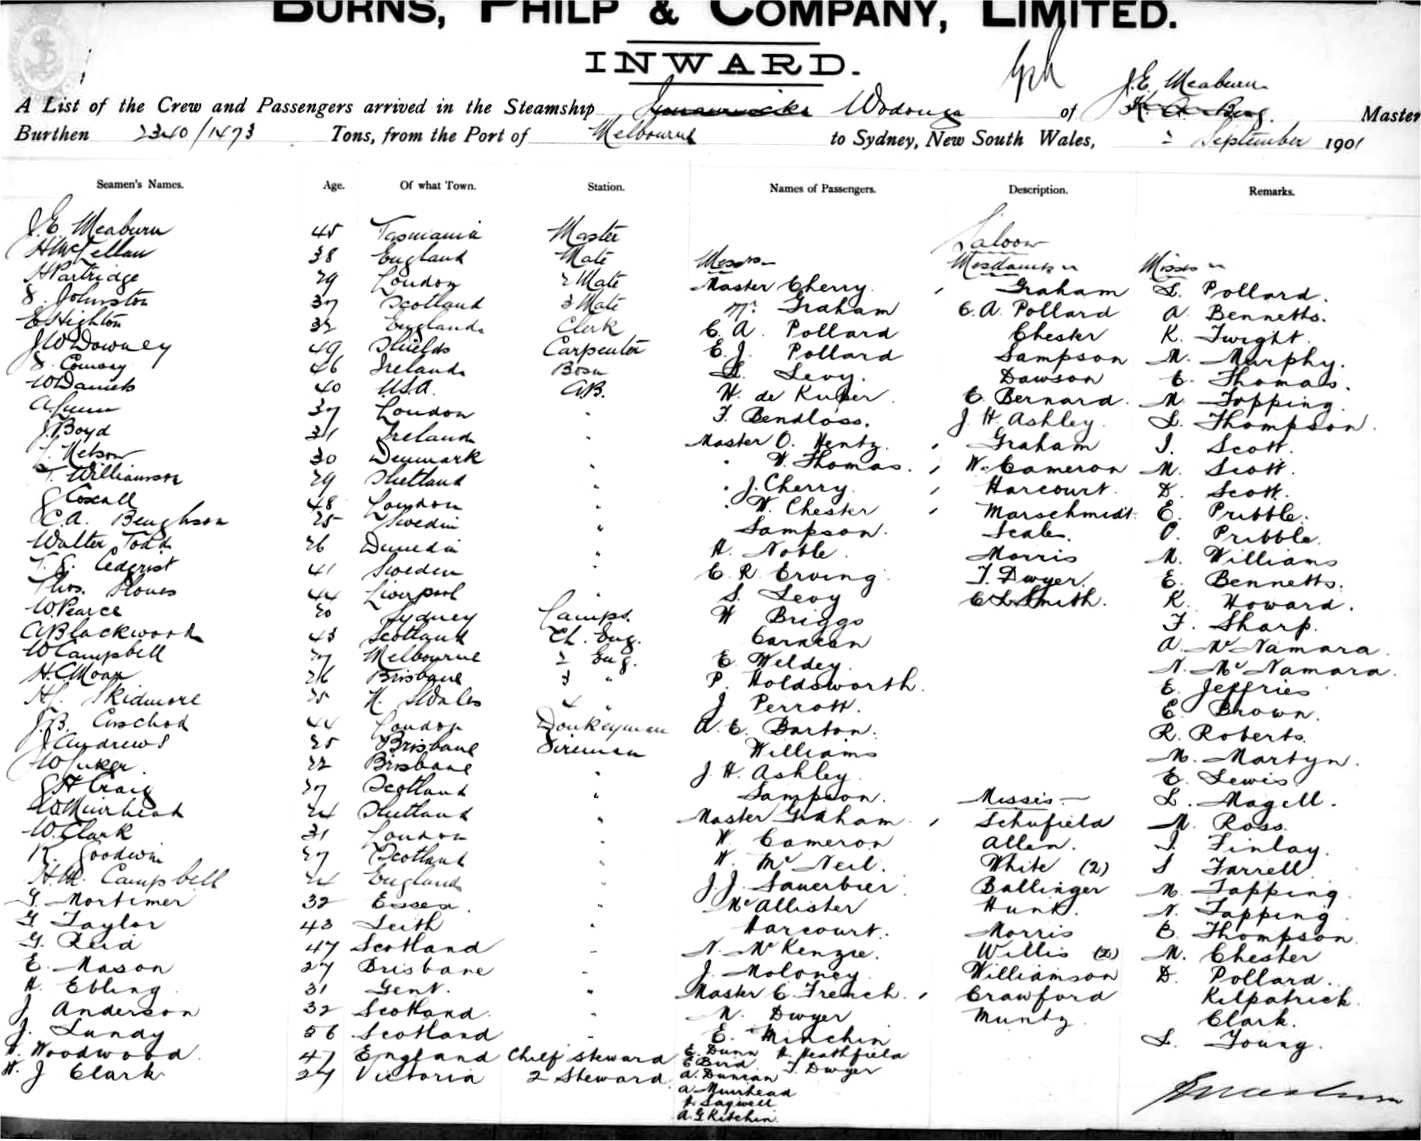 BURNS, PHILP & COMPANY, LIMITED.
INWARD.
J. E. Meaburn
A List of the Crew and Passengers arrived in the Steamship Wodonga of Master
Burthen 2340/1473 Tons, from the Port of Melbourne to Sydney, New South Wales, 2 September 1901
Seamen's Names. Age. Of what Town. Station. Names of Passengers. Description. Remarks.
J. E. Meaburn 45 Tasmania Master
H McLellan 38 England Mate
H Partridge 29 London 2 Mate
S. Johnston 37 Scotland 3 Mate
E Highton 32 England Clerk
J W Downey 49 Shields Carpenter
S. Conway 46 Ireland Bosn
W Daniels 40 U.S.A. A.B.
A Lunn 37 London "
J. Boyd 31 Ireland "
J. Nelson 30 Denmark "
T. Williamson 29 Shetland "
G Coxall 48 London "
C. A. Benghson 25 Sweden "
Walter Todd 26 Dunedin "
T. E. Cedgrist 41 Sweden "
Thos. Plows 44 Liverpool "
W Pearce 20 Sydney Lamps.
A Blackwood 43 Scotland Ch. Eng.
W Campbell 37 Melbourne 2 Eng.
H. C Moar 26 Brisbane 3 "
H. Skidmore 25 N. S Wales 4 "
J. B. 44 London Donkeyman
J Andrews 25 Brisbane Fireman
W Tuker 22 Brisbane "
G H Craig 27 Scotland "
W Muirhead 24 Shetland "
W. Clark 31 London "
R. Goodwin 27 Scotland "
H. M. Campbell 24 England "
G. Mortimer 32 Essex "
G Taylor 43 Leith "
G. Reid 47 Scotland "
E. Mason 27 Brisbane "
H. Ebling 31 Gent. "
J. Anderson 32 Scotland "
J. Lundy 26 Scotland "
W. Woodwood 47 England Chief Steward
H. J Clark 24 Victoria 2 Steward
Messrs
Master Cherry
Mr. Graham
C. A. Pollard
E. J. Pollard
L. Levy.
H. de Kuper
F. Bendloss.
Master O. Hentz.
" W. Thomas.
" J. Cherry
" W. Chester
Sampson.
H. Noble.
C. R. Erving
S. Levy
W Briggs
Carnean
E. Weldey.
P. Holdsworth.
J Perrott.
A. E. Barton.
Williams
J. H. Ashley.
Sampson.
Master Graham
W. Cameron
W. McNeil.
J. J. Sauerbier.
McAllister
Harcourt.
N. McKenzie.
J. Moloney.
Master C. French
M. Dwyer
E. Minchin
E. Dunn H. Heathfield
E Bird T. Dwyer
A. Duncan
A Muirhead
J. Sagwell
A. G Kitchin
Saloon
Mesdames
Graham
C. A. Pollard
Chester
Sampson
Dawson
E. Bernard.
J. H. Ashley.
Graham
W. Cameron
Harcourt.
Marschmidt.
Scales.
Morris
T. Dwyer.
C L Smith.
Misses
Schufield
Allen.
White (2)
Ballinger
Hunt.
Morris
Willis (2)
Williamson
Crawford
Muntz
Misses
L. Pollard.
A. Bennetts.
K. Twight.
M. Murphy.
E. Thomas.
M. Topping.
L. Thompson.
J. Scott.
M. Scott.
D. Scott.
E. Pribble.
O. Pribble.
M. Williams
E. Bennetts.
K. Howard.
F. Sharp.
A. McNamara.
N. McNamara.
E. Jeffries
E. Brown.
R. Roberts
M. Martyn.
E. Lewis
L. Magill.
M. Ross
I. Finlay.
S Farrell.
M Topping
N. Topping
E. Thompson
M. Chester
D. Pollard.
Kilpatrick.
Clark.
L. Young.